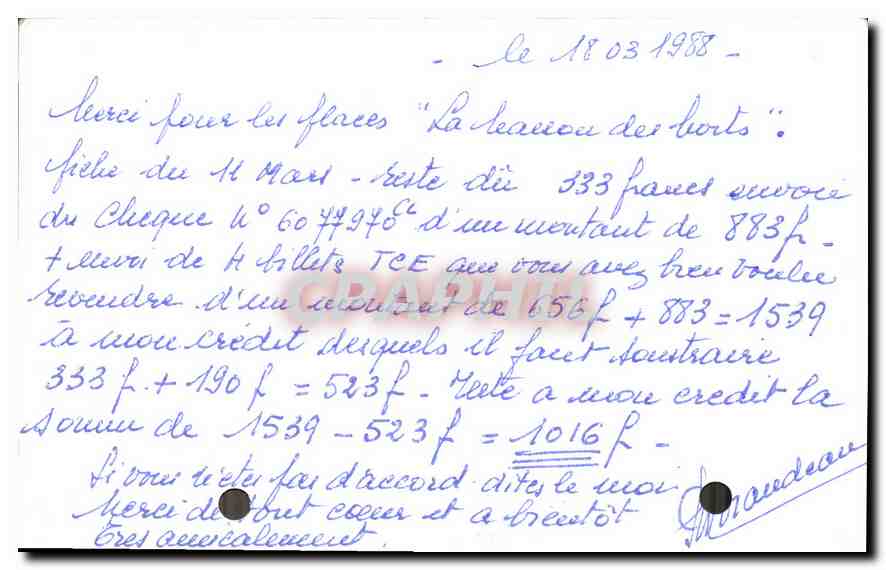 - le 18 03 1988 -
Merci pour les places "La maison des morts".
fiche du 11 Mars - reste dû 333 francs envoie
du Cheque N° 6077970 d'un montant de 883 f -
+ envoi de 4 billets TCE que vous avez bien voulu
revendre d'un montant de 656 f + 883 = 1539
à mon crédit desquels il faut soustraire
333 f. + 190 f = 523 f - Reste a mon credit la
somme de 1539 - 523 f = 1016 f -
Si vous n'etes pas d'accord dites le moi
Merci de tout coeur et a bientôt
Tres amicalement.
CPAPHIL